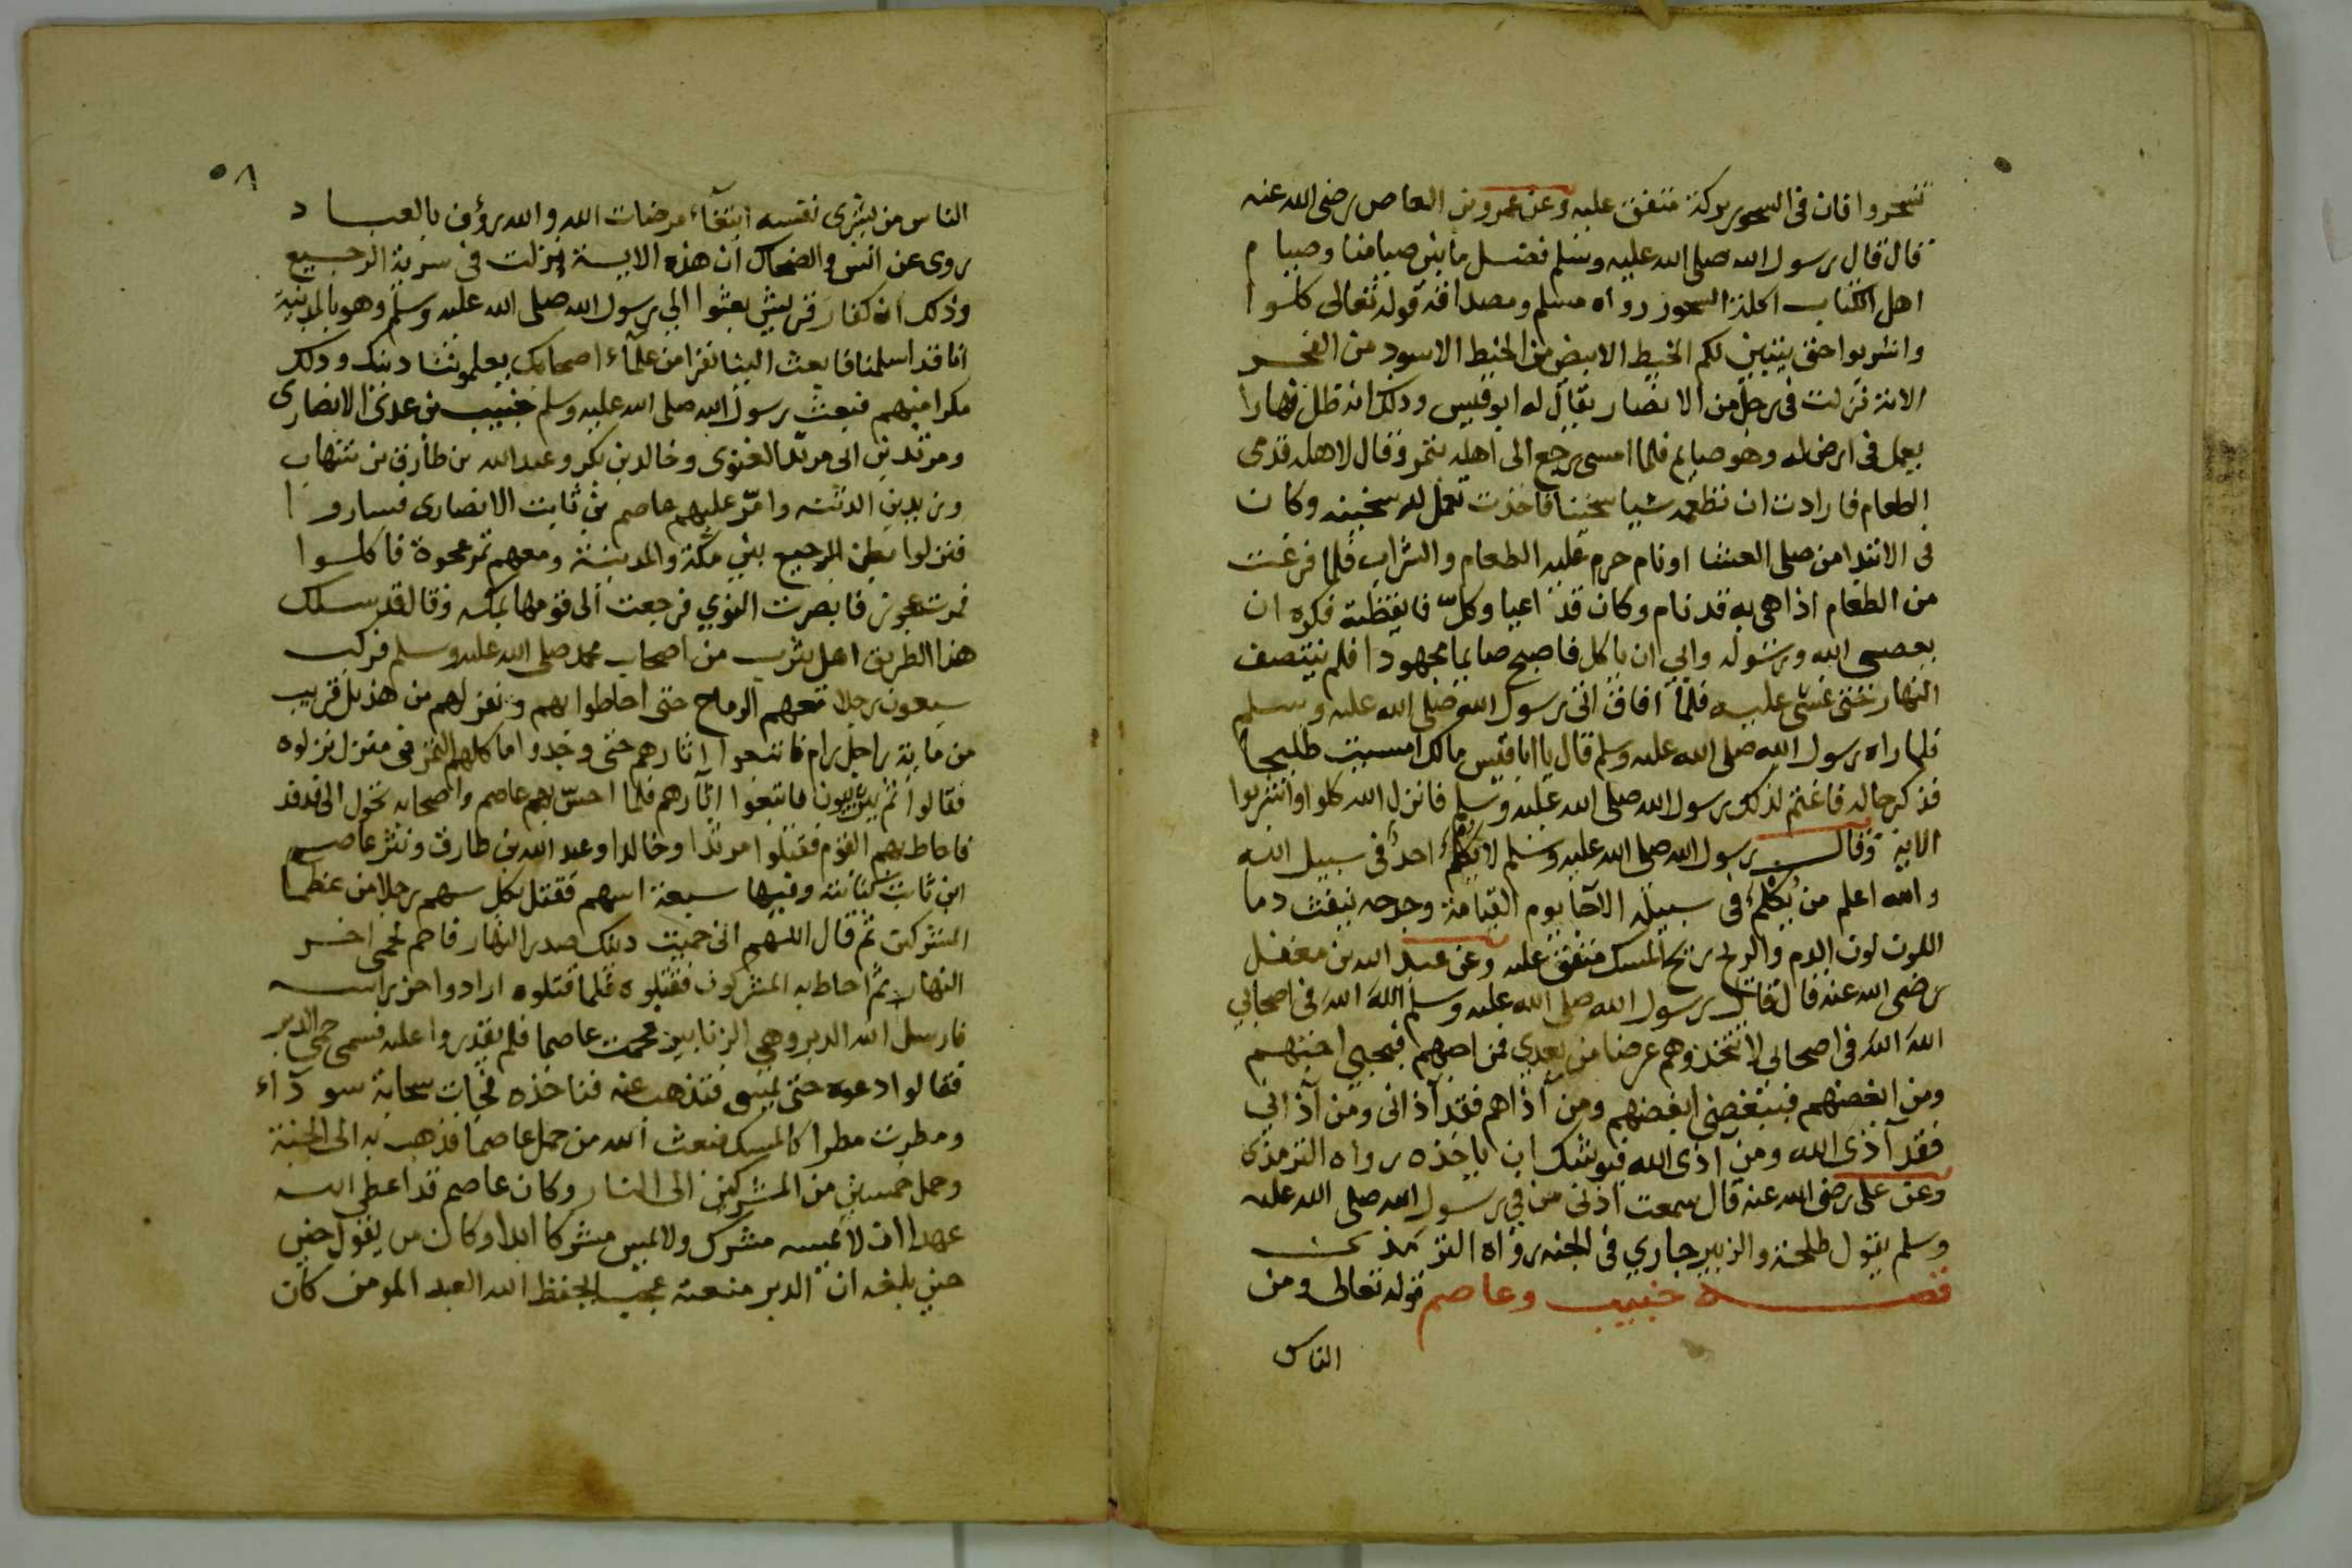 تسحروا فان فى السحور بركة متفق عليه وعن عمرو بن العاص رضى الله عنه
قال قال رسول الله صلى الله عليه وسلم فضل ما بين صيامنا وصيام
اهل الكتاب اكلة السحور رواه مسلم ومصداقه قوله تعالى كلوا
واشربوا حتى يتبين لكم الخيط الابيض من الخيط الاسود من الفجر
الاية نزلت فى رجل من الانصار يقال له ابو قيس وذلك انه ظل نهارا
يعمل فى ارض له وهو صايم فلما امسى رجع الى اهله بتمر وقال لاهله قدمى
الطعام فارادت ان تطعمه شيا سخنا فاخذت تعمل له سخينه وكان
فى الابتدا من صلى العشا او نام حرم عليه الطعام والشراب فلما فرغت
من الطعام اذا هى به قد نام وكان قد اعيا وكلّ فايقظته فكره ان
يعصى الله ورسوله وابي ان ياكل فاصبح صايما مجهودا فلم ينتصف
النهار حتى غشى عليه فلما افاق اتى رسول الله صلى الله عليه وسلم
فلما راه رسول الله صلى الله عليه وسلم قال يا ابا قيس مالك امسيت طليحا
فذكر حاله فاغتم لذلك رسول الله صلى الله عليه وسلم فانزل الله كلوا واشربوا
الاية وقال رسول الله صلى الله عليه وسلم لا يُكْلَم احدٌ فى سبيل الله
والله اعلم من يُكْلَم فى سبيله الا جا يوم القيامة وجرحه يثعب دما
اللون لون الدم والريح ريح المسك متفق عليه وعن عبد الله بن مغفل
رضى الله عنه قال قال رسول الله صلى الله عليه وسلم اللهَ اللهَ فى اصحابي
اللهَ اللهَ فى اصحابي لا تتخذوهم غرضا من بعدي فمن احبهم فبحبي احبهم
ومن ابغضهم فببغضي ابغضهم ومن آذاهم فقد آذانى ومن آذانى
فقد آذى الله ومن آذى الله فيوشك ان ياخذه رواه الترمذى
وعن على رضى الله عنه قال سمعت اذنى من في رسول الله صلى الله عليه
وسلم يقول طلحة والزبير جاري فى الجنه رواه الترمذى
قصه خبيب وعاصم قوله تعالى ومن
الناس
٥٨
الناس من يشرى نفسه ابتغآء مرضات الله والله رؤف بالعباد
روى عن انس والضحاك ان هذه الاية نزلت فى سرية الرجيع
وذلك ان كفار قريش بعثوا الي رسول الله صلى الله عليه وسلم وهو بالمدينة
انا قد اسلمنا فابعث الينا نفرا من علمآء اصحابك يعلموننا دينك وذلك
مكرا منهم فبعث رسول الله صلى الله عليه وسلم خبيب بن عدى الانصارى
ومرثد بن ابى مرثد الغنوى وخالد بن بكر وعبد الله بن طارق بن شهاب
وزيد بن الدثنه وامّر عليهم عاصم بن ثابت الانصارى فساروا
فنزلوا بطن الرجيع بين مكة والمدينة ومعهم تمر عجوة فاكلوا
فمرت عجوز فابصرت النوي فرجعت الى قومها بمكه وقالت قد سلك
هذا الطريق اهل يثرب من اصحاب محمد صلى الله عليه وسلم فركب
سبعون رجلا معهم الرماح حتى احاطوا بهم ونفر لهم من هذيل قريب
من ماية راجل رام فاتبعوا اثارهم حتى وجدوا ماكلهم التمر فى منزل نزلوه
فقالوا تمر يثرب فاتبعوا اثآرهم فلما احسّ بهم عاصم واصحابه تحول الى فدفد
فاحاط بهم القوم فقتلوا مرثدا وخالدا وعبد الله بن طارق ونثر عاصم
ابن ثابت كنانته وفيها سبعة اسهم فقتل بكل سهم رجلا من عظما
المشركين ثم قال اللهم انى حميت دينك صدر النهار فاحم لحمى اخر
النهار ثم احاط به المشركون فقتلوه فلما قتلوه ارادوا حز راسه
فارسل الله الدبر وهي الزنابير فحمت عاصما فلم يقدروا عليه فسمى حمي الدبر
فقالوا دعوه حتى يمسى فتذهب عنه فناخذه فجات سحابة سودآء
ومطرت مطرا كالمسك فبعث الله من حمل عاصما فذهب به الى الجنة
وحمل خمسين من المشركين الى النار وكان عاصم قد اعطى الله
عهدا ان لا يمسه مشرك ولا يمس مشركا ابدا وكان عمر يقول
حين بلغه ان الدبر منعته عجب لحفظ الله العبد المومن كان